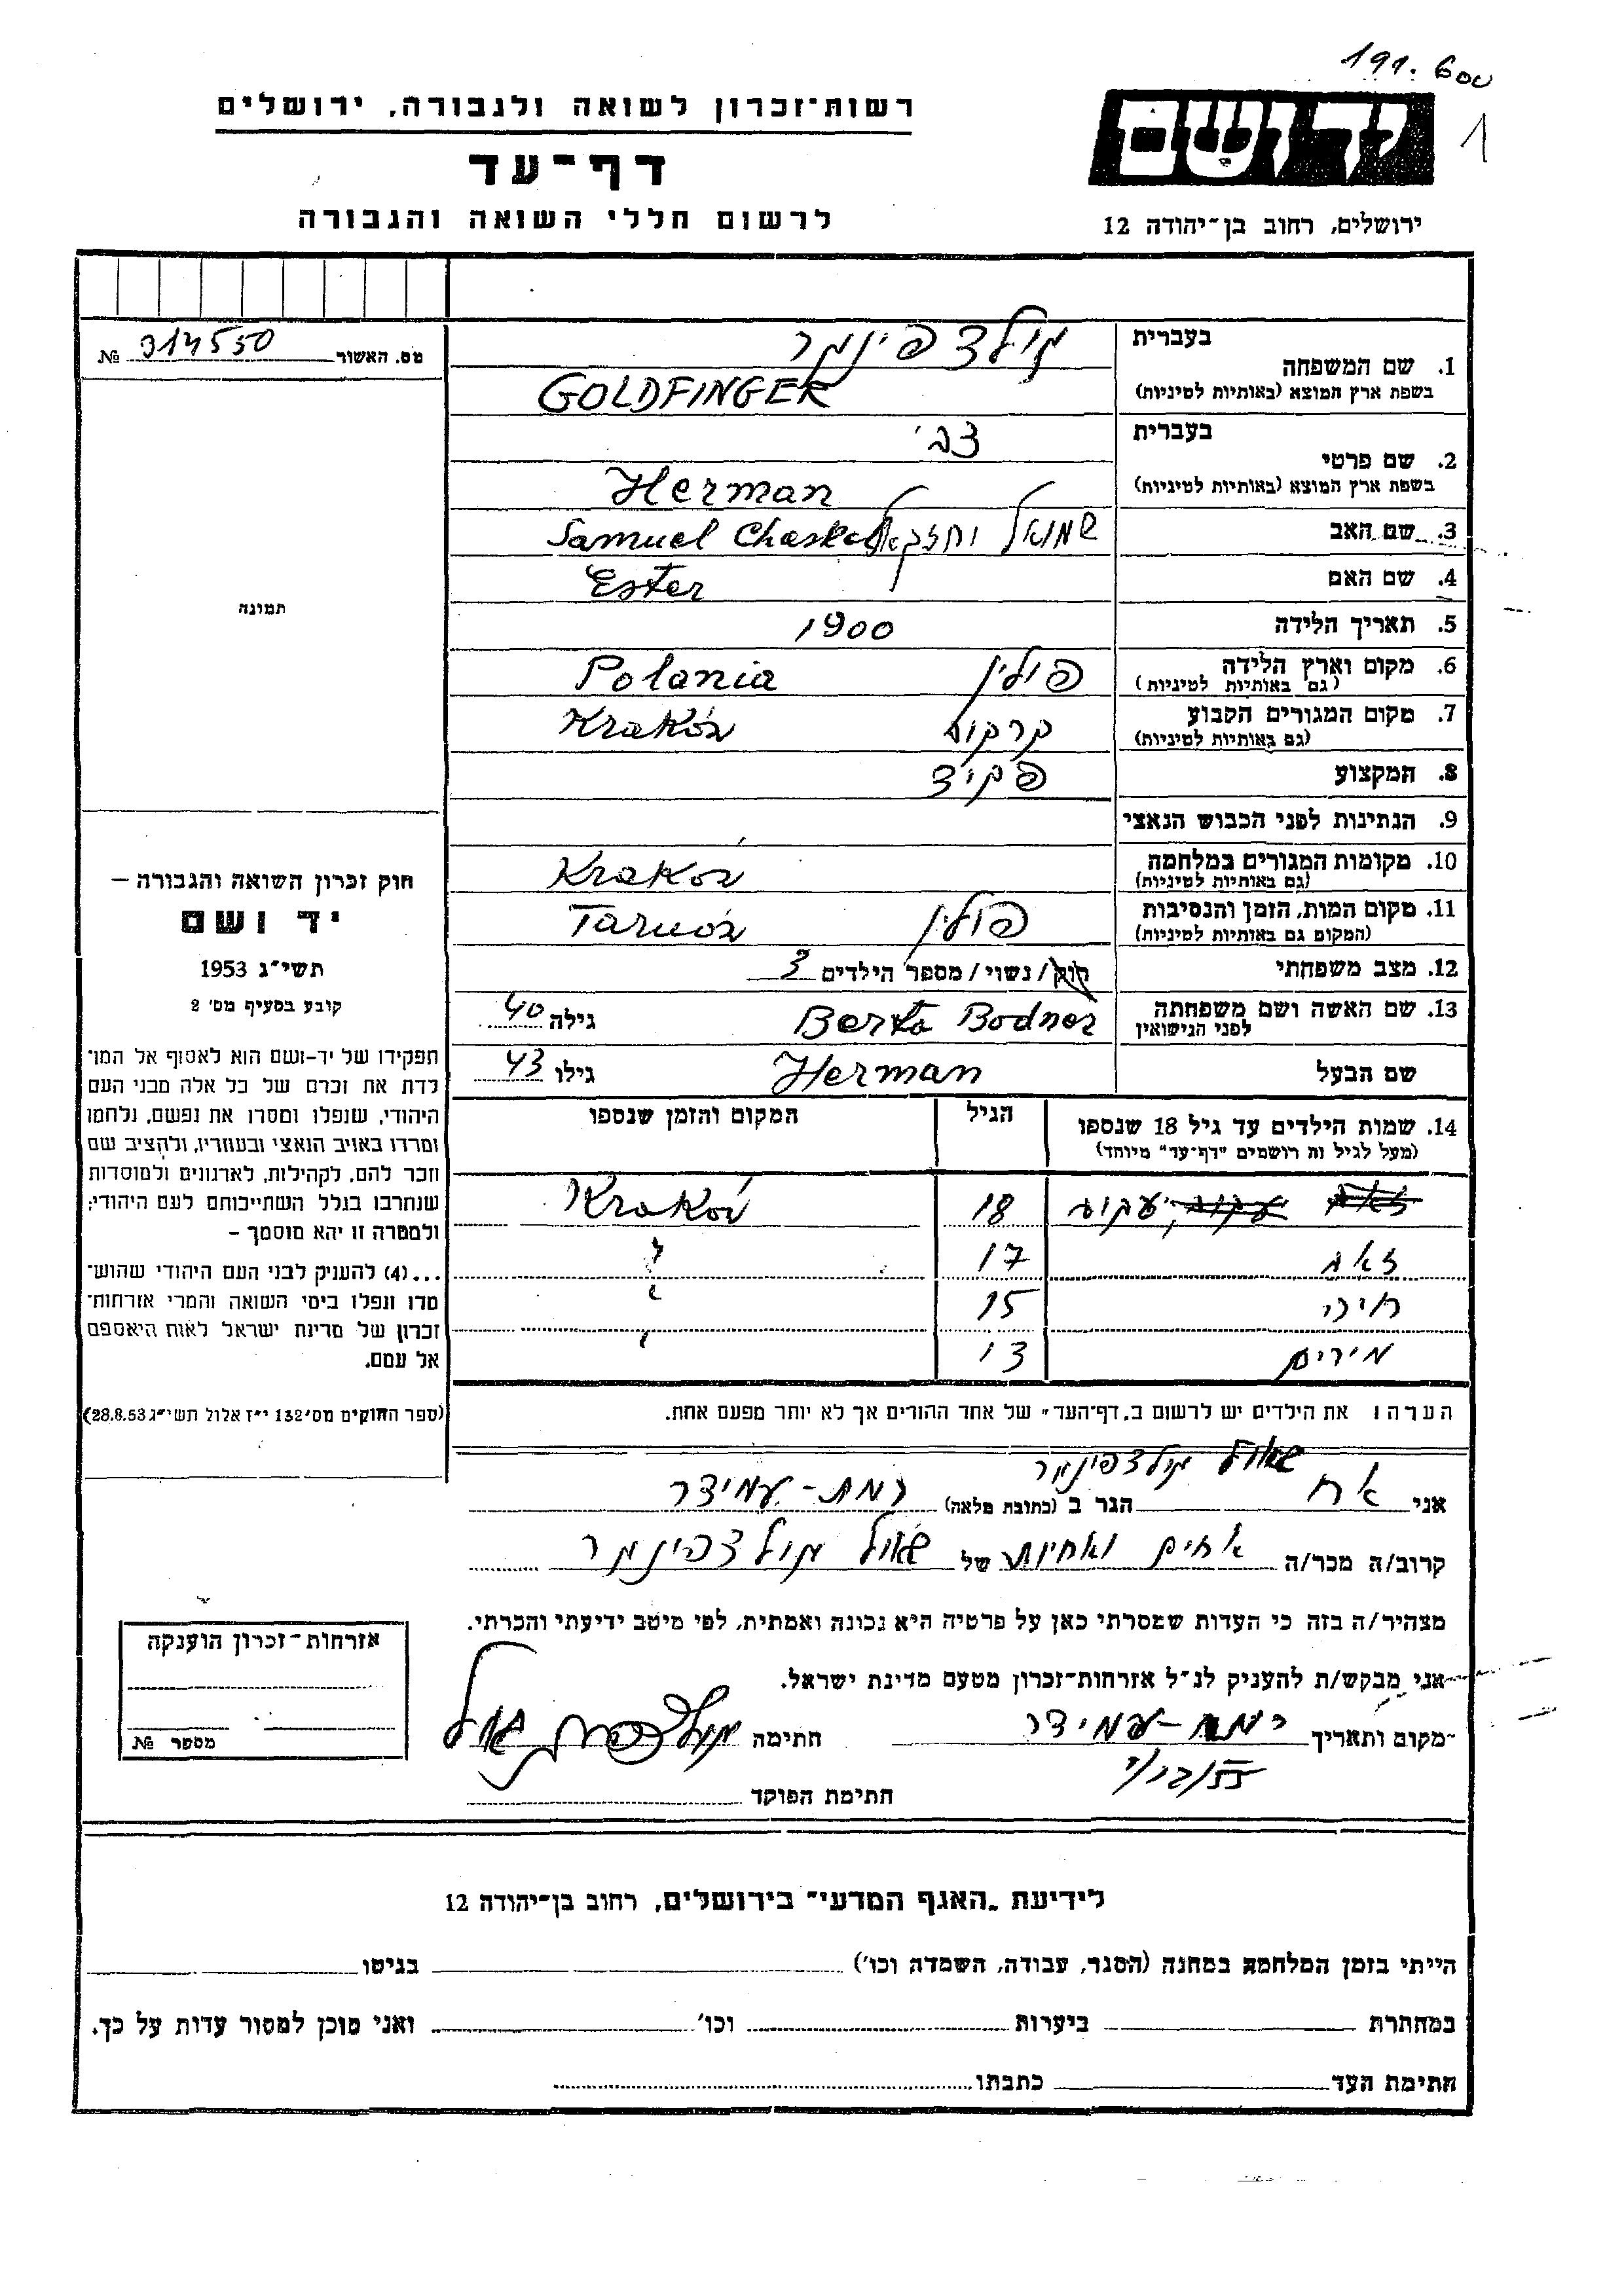 191.600
1
יד ושם
ירושלים, רחוב בן־יהודה 12
רשות־זכרון לשואה ולגבורה, ירושלים
דף־עד
לרשום חללי השואה והגבורה
מס. האשור 314550 №
תמונה
בעברית גולדפינגר
1. שם המשפחה
בשפת ארץ המוצא (באותיות לטיניות) GOLDFINGER
בעברית צבי
2. שם פרטי
בשפת ארץ המוצא (באותיות לטיניות) Herman
3. שם האב שמואל יחזקאל Samuel Chaskel
4. שם האם Ester
5. תאריך הלידה 1900
6. מקום וארץ הלידה פולין Polania
(גם באותיות לטיניות)
7. מקום המגורים הקבוע קרקוב Kraków
(גם באותיות לטיניות)
8. המקצוע פקיד
9. הנתינות לפני הכבוש הנאצי
10. מקומות המגורים במלחמה Kraków
(גם באותיות לטיניות)
11. מקום המות, הזמן והנסיבות פולין Tarnów
(המקום גם באותיות לטיניות)
12. מצב משפחתי רווק/ נשוי/ מספר הילדים 3
13. שם האשה ושם משפחתה Berta Bodner גילה 40
לפני הנישואין
שם הבעל Herman גילו 43
14. שמות הילדים עד גיל 18 שנספו הגיל המקום והזמן שנספו
(מעל לגיל זה רושמים "דף־עד" מיוחד)
יעקוב 18 Kraków
זאב 17
חיה 15
מירים 13
הערה: את הילדים יש לרשום ב„דף־העד" של אחד ההורים אך לא יותר מפעם אחת.
חוק זכרון השואה והגבורה –
יד ושם
תשי"ג 1953
קובע בסעיף מס' 2
תפקידו של יד-ושם הוא לאסוף אל המו־
לדת את זכרם של כל אלה מבני העם
היהודי, שנפלו ומסרו את נפשם, נלחמו
ומרדו באויב הנאצי ובעוזריו, ולהציב שם
וזכר להם, לקהילות, לארגונים ולמוסדות
שנחרבו בגלל השתייכותם לעם היהודי;
ולמטרה זו יהא מוסמך –
...(4) להעניק לבני העם היהודי שהוש־
מדו ונפלו בימי השואה והמרי אזרחות־
זכרון של מדינת ישראל לאות היאספם
אל עמם.
(ספר החוקים מס' 132 י"ז אלול תשי"ג 28.8.53)
שאול גולדפינגר
אני אח הגר ב (כתובת מלאה) רמת-עמידר
קרוב/ה מכר/ה אחים ואחיות של שאול גולדפינגר
מצהיר/ה בזה כי העדות שמסרתי כאן על פרטיה היא נכונה ואמתית, לפי מיטב ידיעתי והכרתי.
אני מבקש/ת להעניק לנ"ל אזרחות־זכרון מטעם מדינת ישראל.
מקום ותאריך רמת-עמידר חתימה גולדפינגר שאול
חתימת הפוקד
אזרחות־זכרון הוענקה
מספר №
לידיעת „האגף המדעי" בירושלים, רחוב בן־יהודה 12
הייתי בזמן המלחמה במחנה (הסגר, עבודה, השמדה וכו') בגיטו
במחתרת ביערות וכו' ואני מוכן למסור עדות על כך.
חתימת העד כתבתו